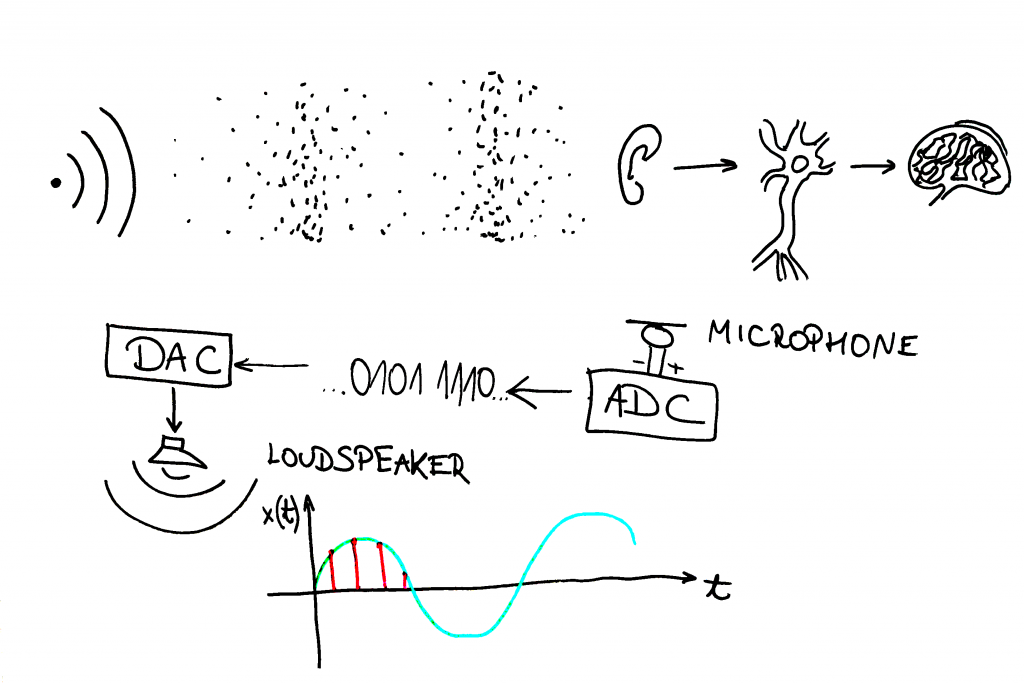 MICROPHONE
- +
DAC
...0101 1110...
ADC
LOUDSPEAKER
x(t)
t